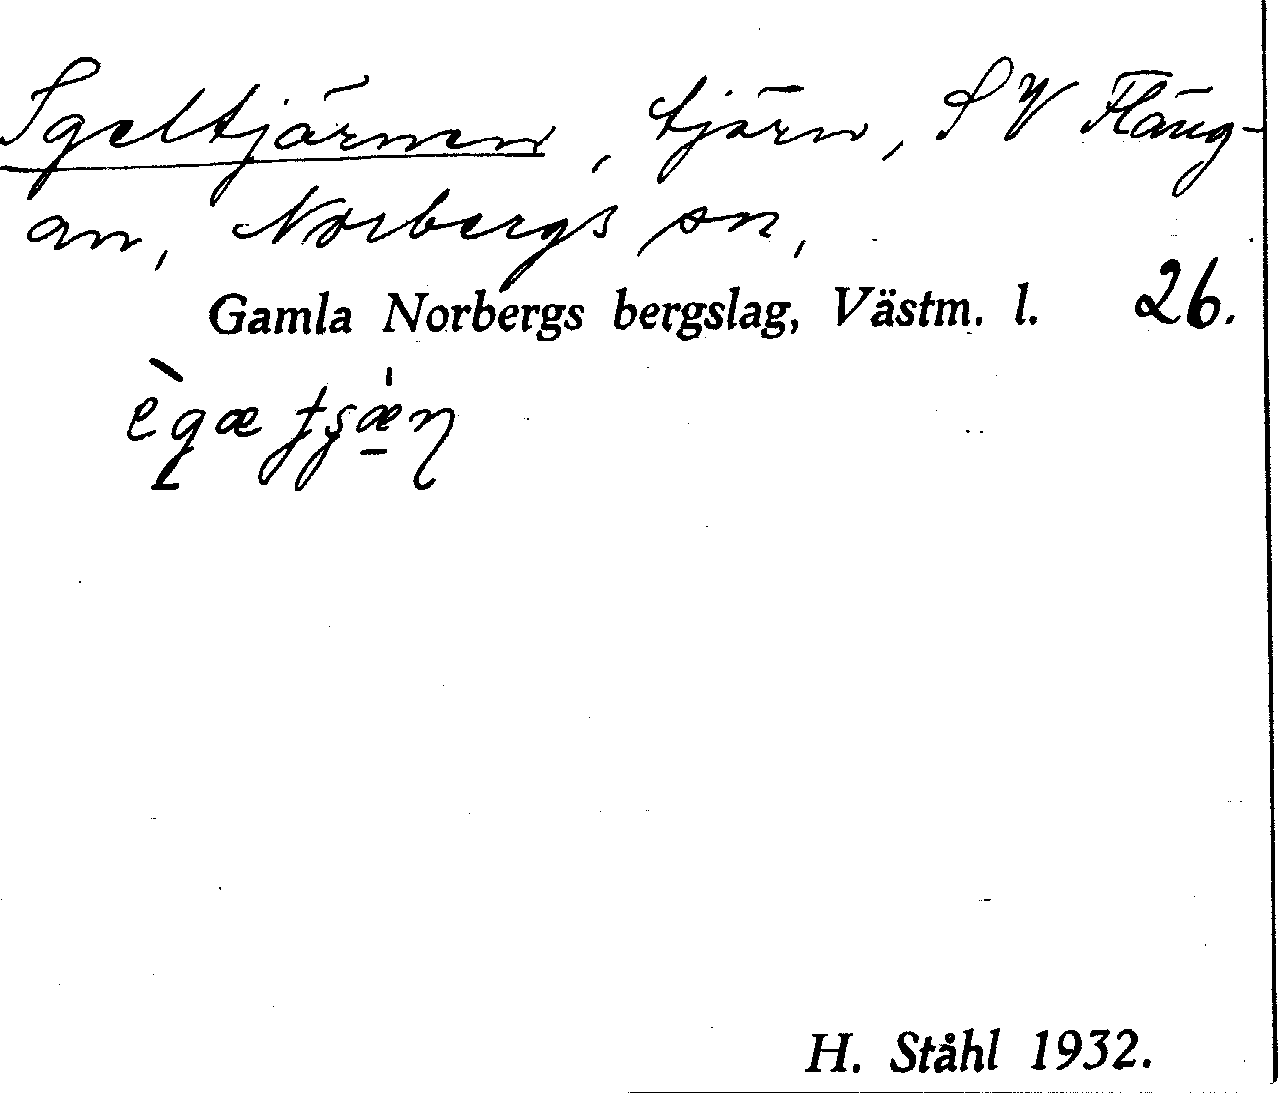 Igeltjärnen, tjärn, SV Fläng-
an, Norbergs sn,
Gamla Norbergs bergslag, Västm. l. 26.
H. Ståhl 1932.